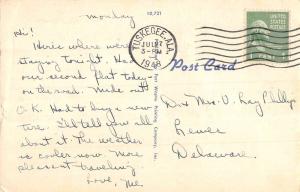 Monday
10,721
Hi!
Here's where were
staying tonight. Had
our second flat today-
on the road. Made out
O.K. Had to buy a new
tire. I'll tell you all
about it. The weather
is cooler now. More
pleasant traveling
Love, Me.
TUSKEGEE, ALA.
JUL
3-PM
1948
Post Card
Dr & Mrs. O. Ray Phillips
Lewes
Delaware.